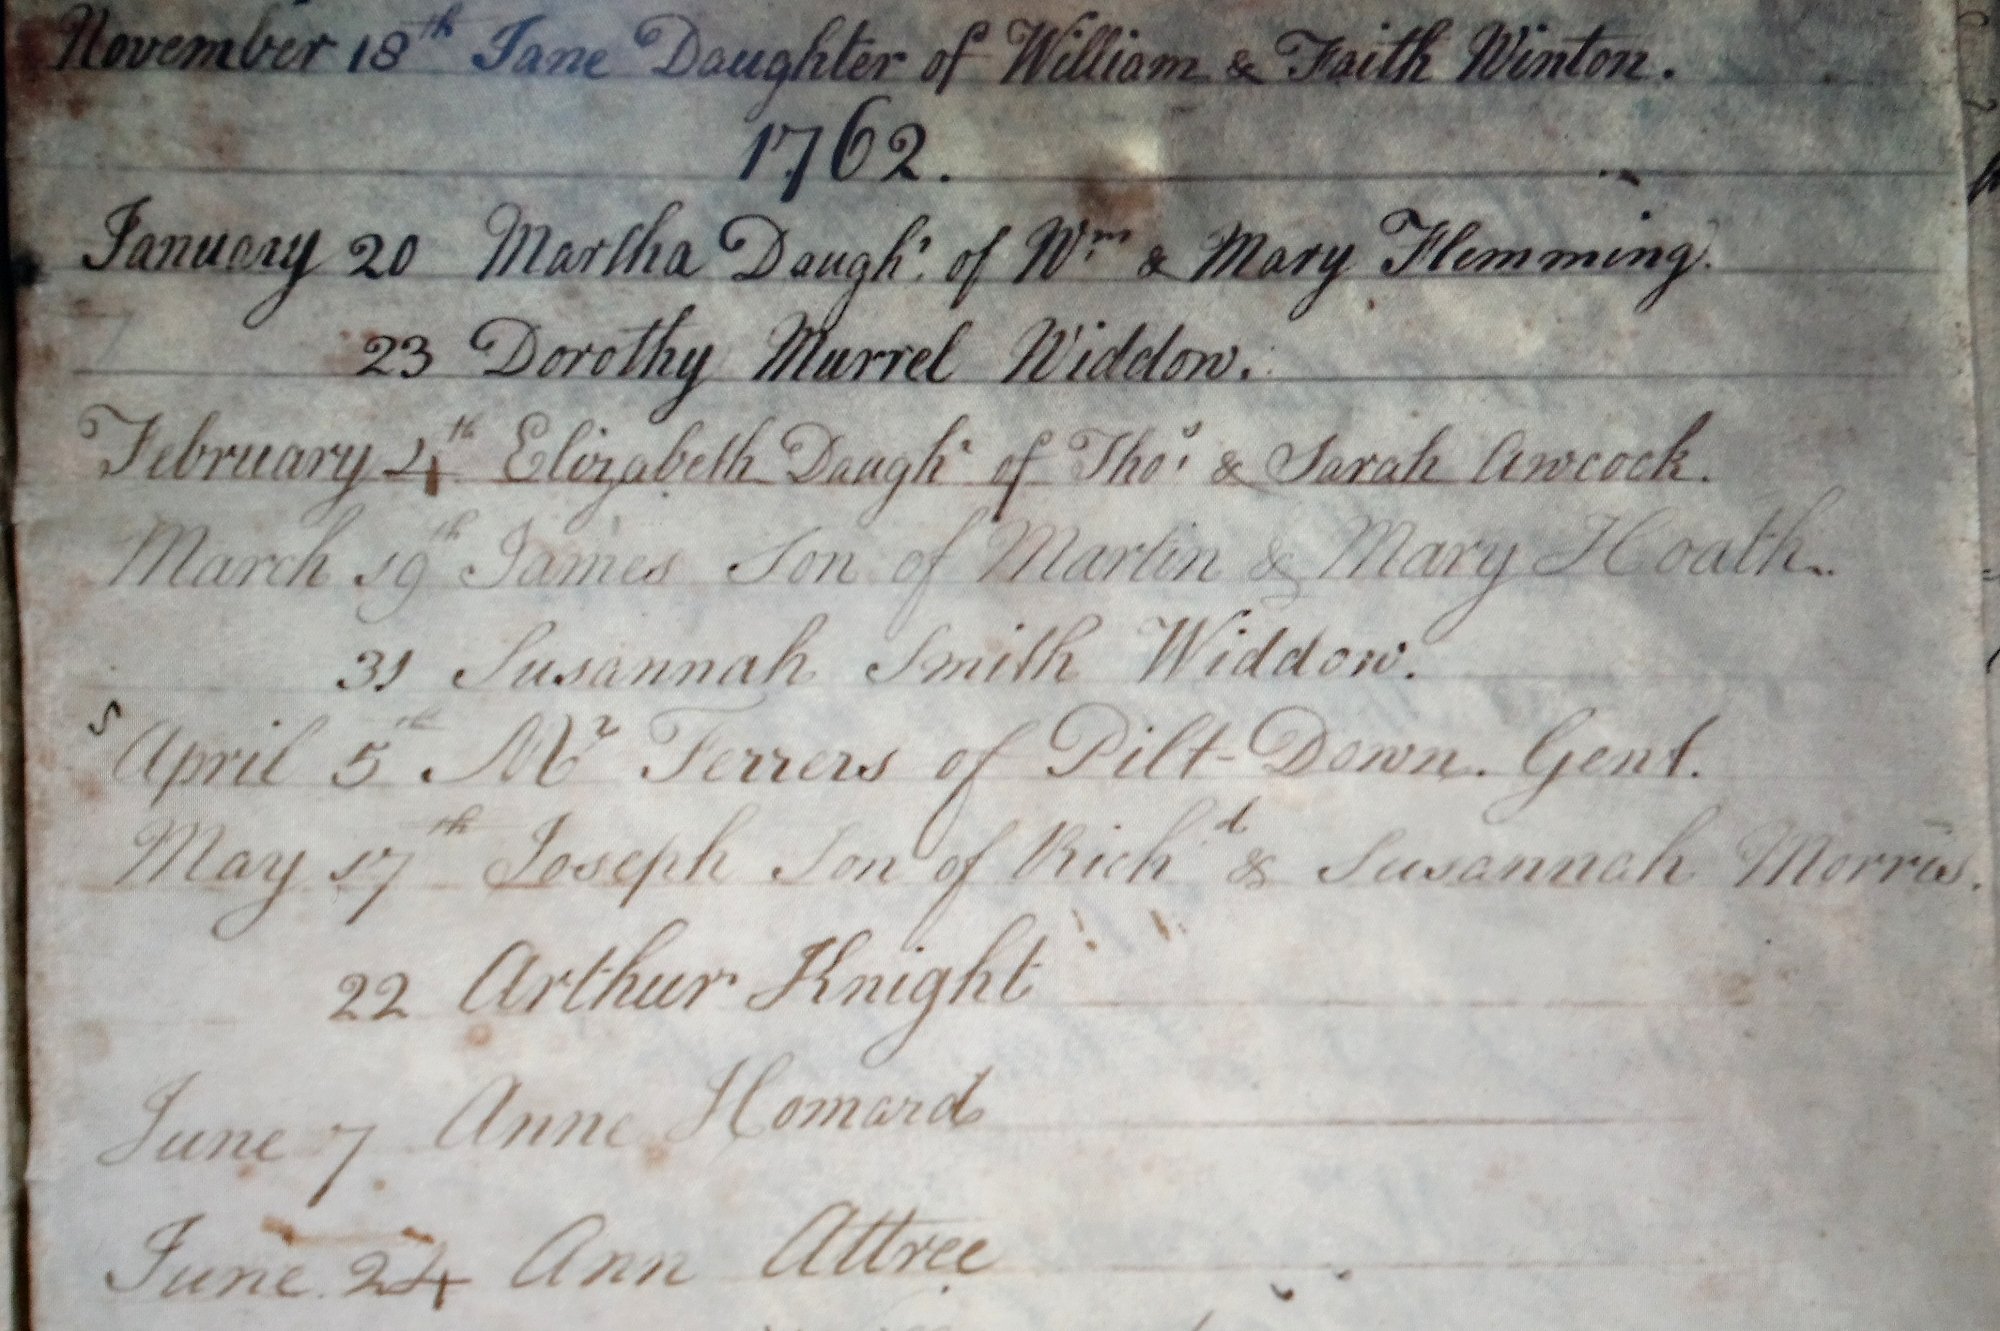 November 18th Jane Daughter of William & Faith Winton.
1762.
January 20 Martha Daughr. of Wm & Mary Flemming.
23 Dorothy Murrel Widdow.
February 4th Elizabeth Daughr of Thos. & Sarah Awcock.
March 19th James Son of Martin & Mary Hoath.
31 Susannah Smith Widdow.
April 5th. Mr Ferrers of Pilt-Down. Gent.
May 17th Joseph Son of Richd & Susannah Morris.
22 Arthur Knight
June 7 Anne Homard
June 24 Ann Attree